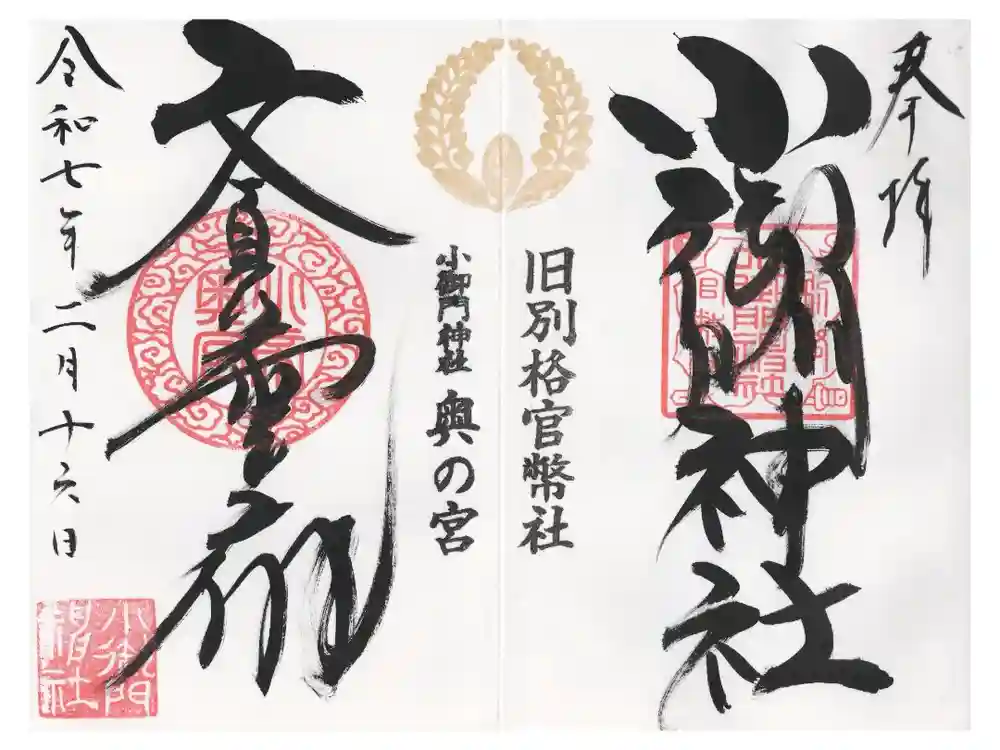 奉拝
小御門神社
旧別格官幣社
小御門神社 奥の宮
文貞
令和七年二月十六日
小御門神社